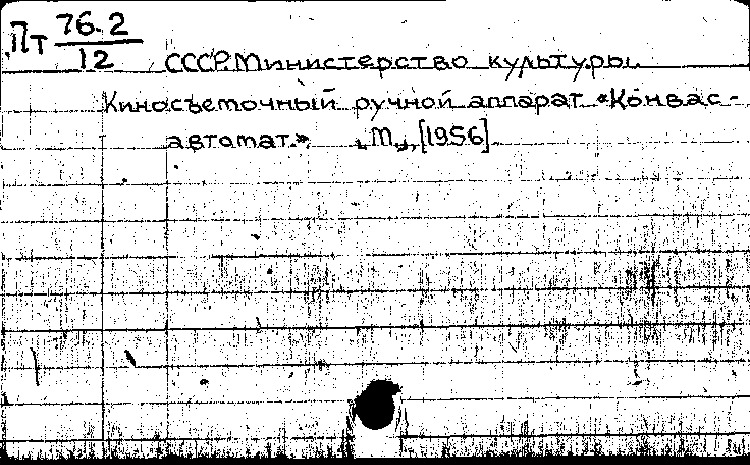 Пт 76.2
12
СССР. Министерство культуры.
Киносъемочный ручной аппарат «Конвас-
автомат». М., [1956].